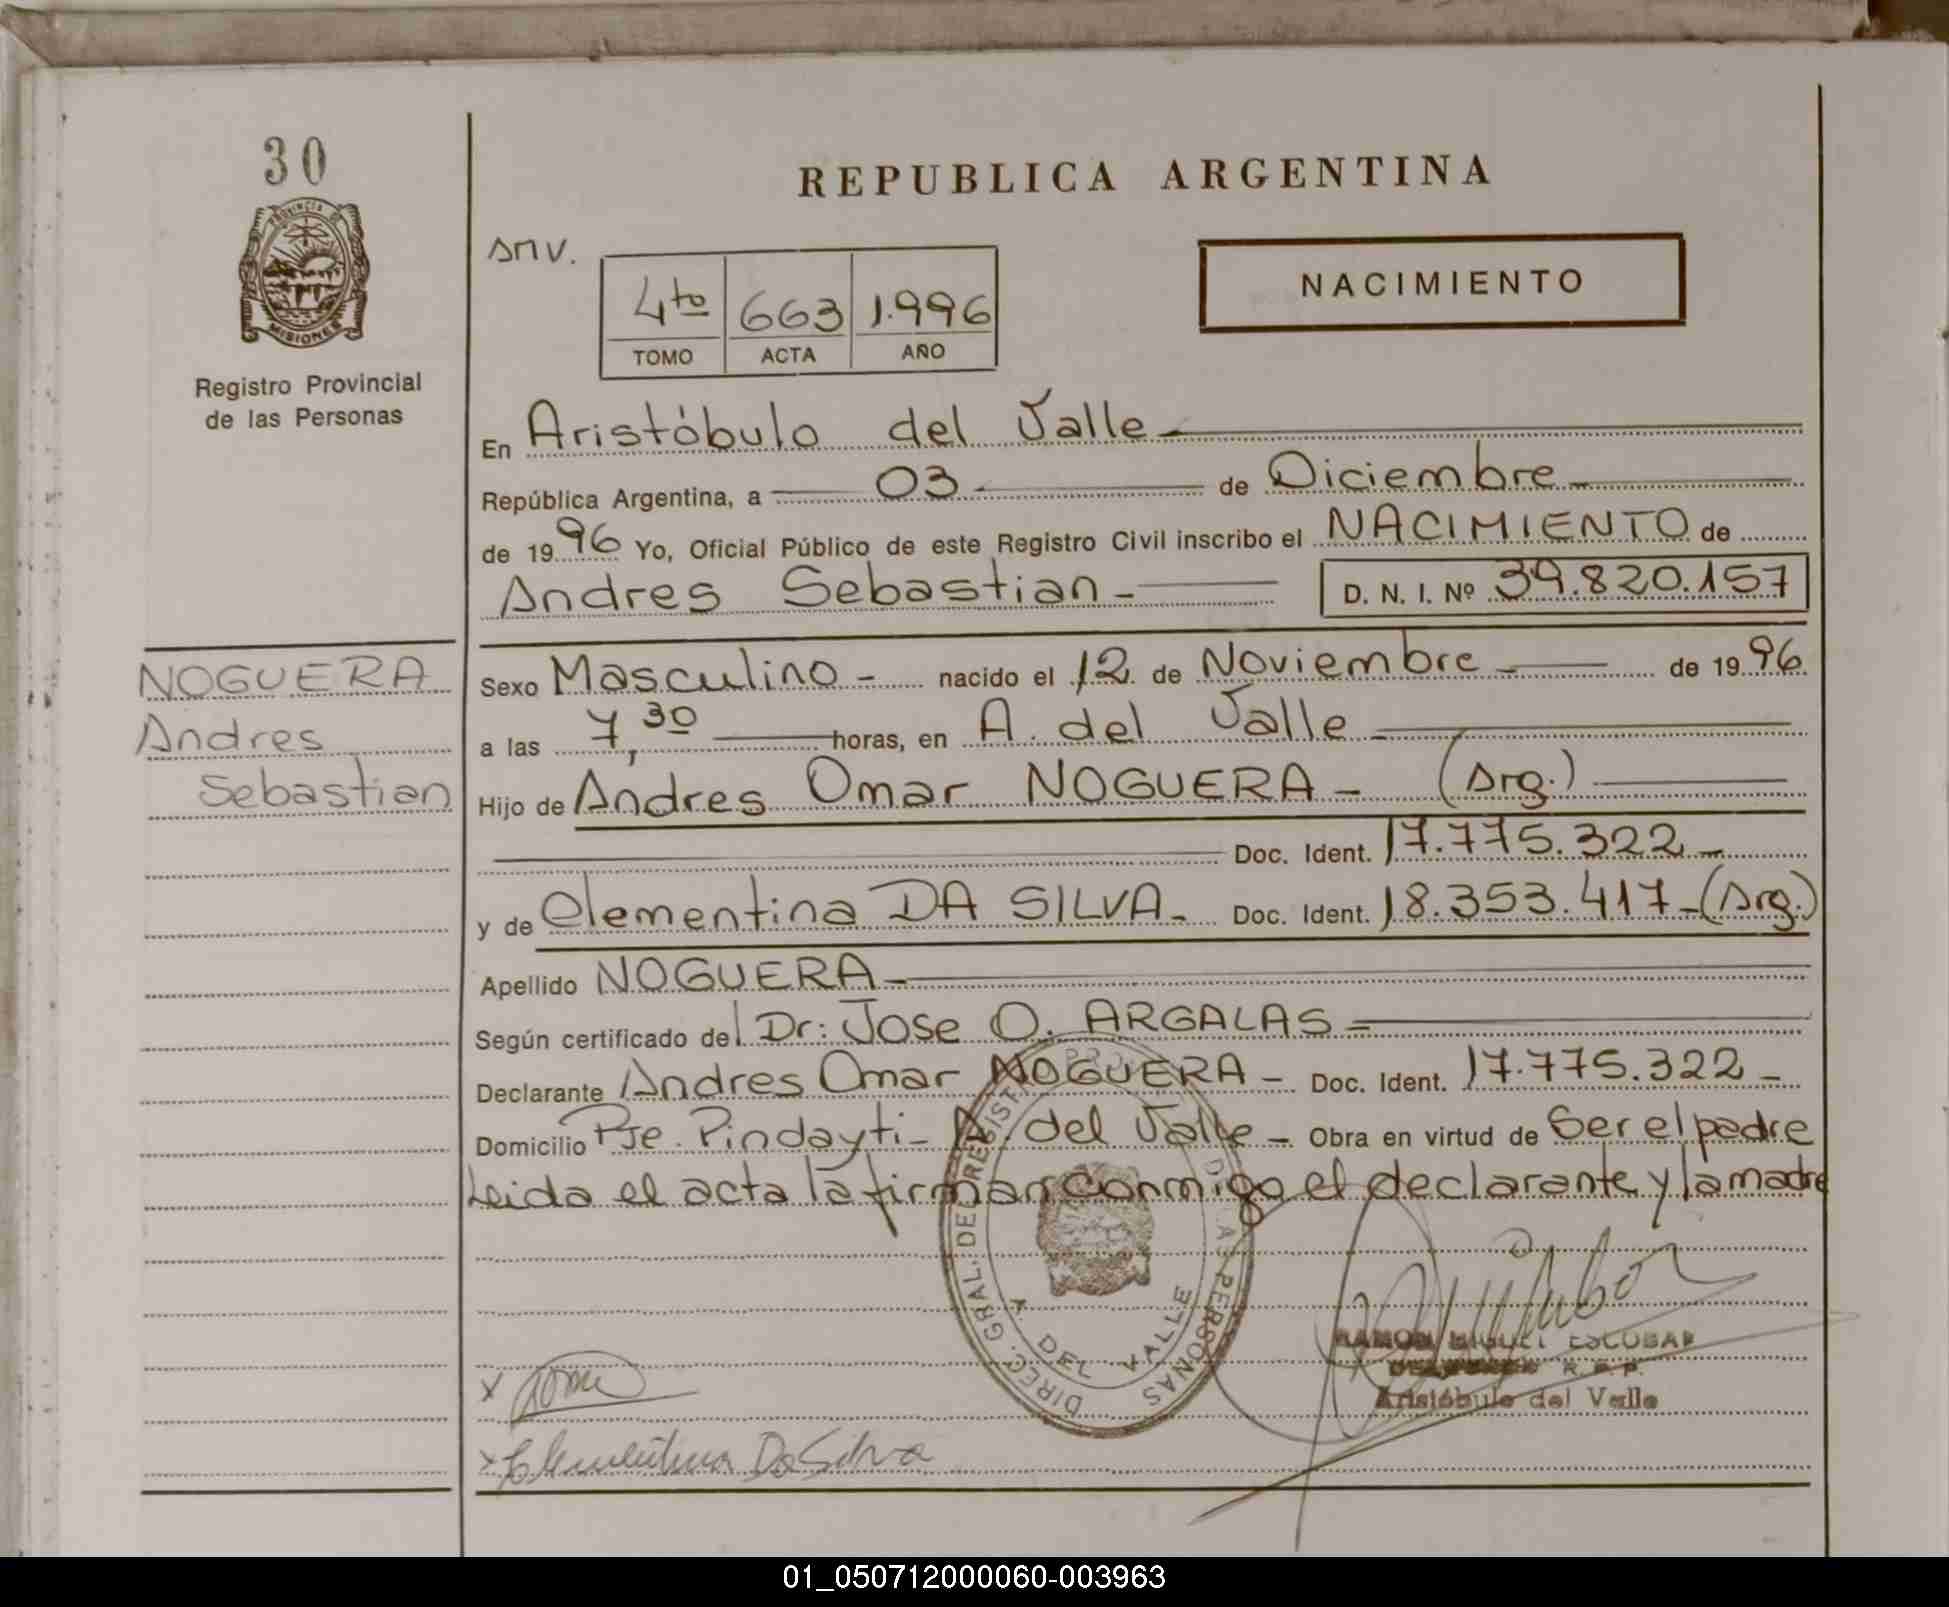 30
PROVINCIA DE
MISIONES
Registro Provincial
de las Personas
NOGUERA
Andres
Sebastian
REPUBLICA ARGENTINA
NACIMIENTO
4to 663 1.996
TOMO ACTA AÑO
En Aristóbulo del Valle
República Argentina, a 03 de Diciembre
de 1996 Yo, Oficial Público de este Registro Civil inscribo el NACIMIENTO de
Andres Sebastian D. N. I. Nº 39.820.157
Sexo Masculino nacido el 12 de Noviembre de 1996
a las 7,30 horas, en A. del Valle
Hijo de Andres Omar NOGUERA - (Arg.)
Doc. Ident. 17.775.322
y de Clementina DA SILVA Doc. Ident. 18.353.417 - (Arg.)
Apellido NOGUERA
Según certificado del Dr: Jose O. ARGALAS
Declarante Andres Omar NOGUERA - Doc. Ident. 17.775.322
Domicilio Pje. Pindayti - A. del Valle - Obra en virtud de Ser el padre
Leida el acta la firman conmigo el declarante y la madre
DIREC. GRAL. DEL REGIST. DE LAS PERSONAS
A. DEL VALLE
RAMON MIGUEL ESCOBAR
R. P. P.
Aristóbulo del Valle
x
x Clementina Da Silva
01_050712000060-003963